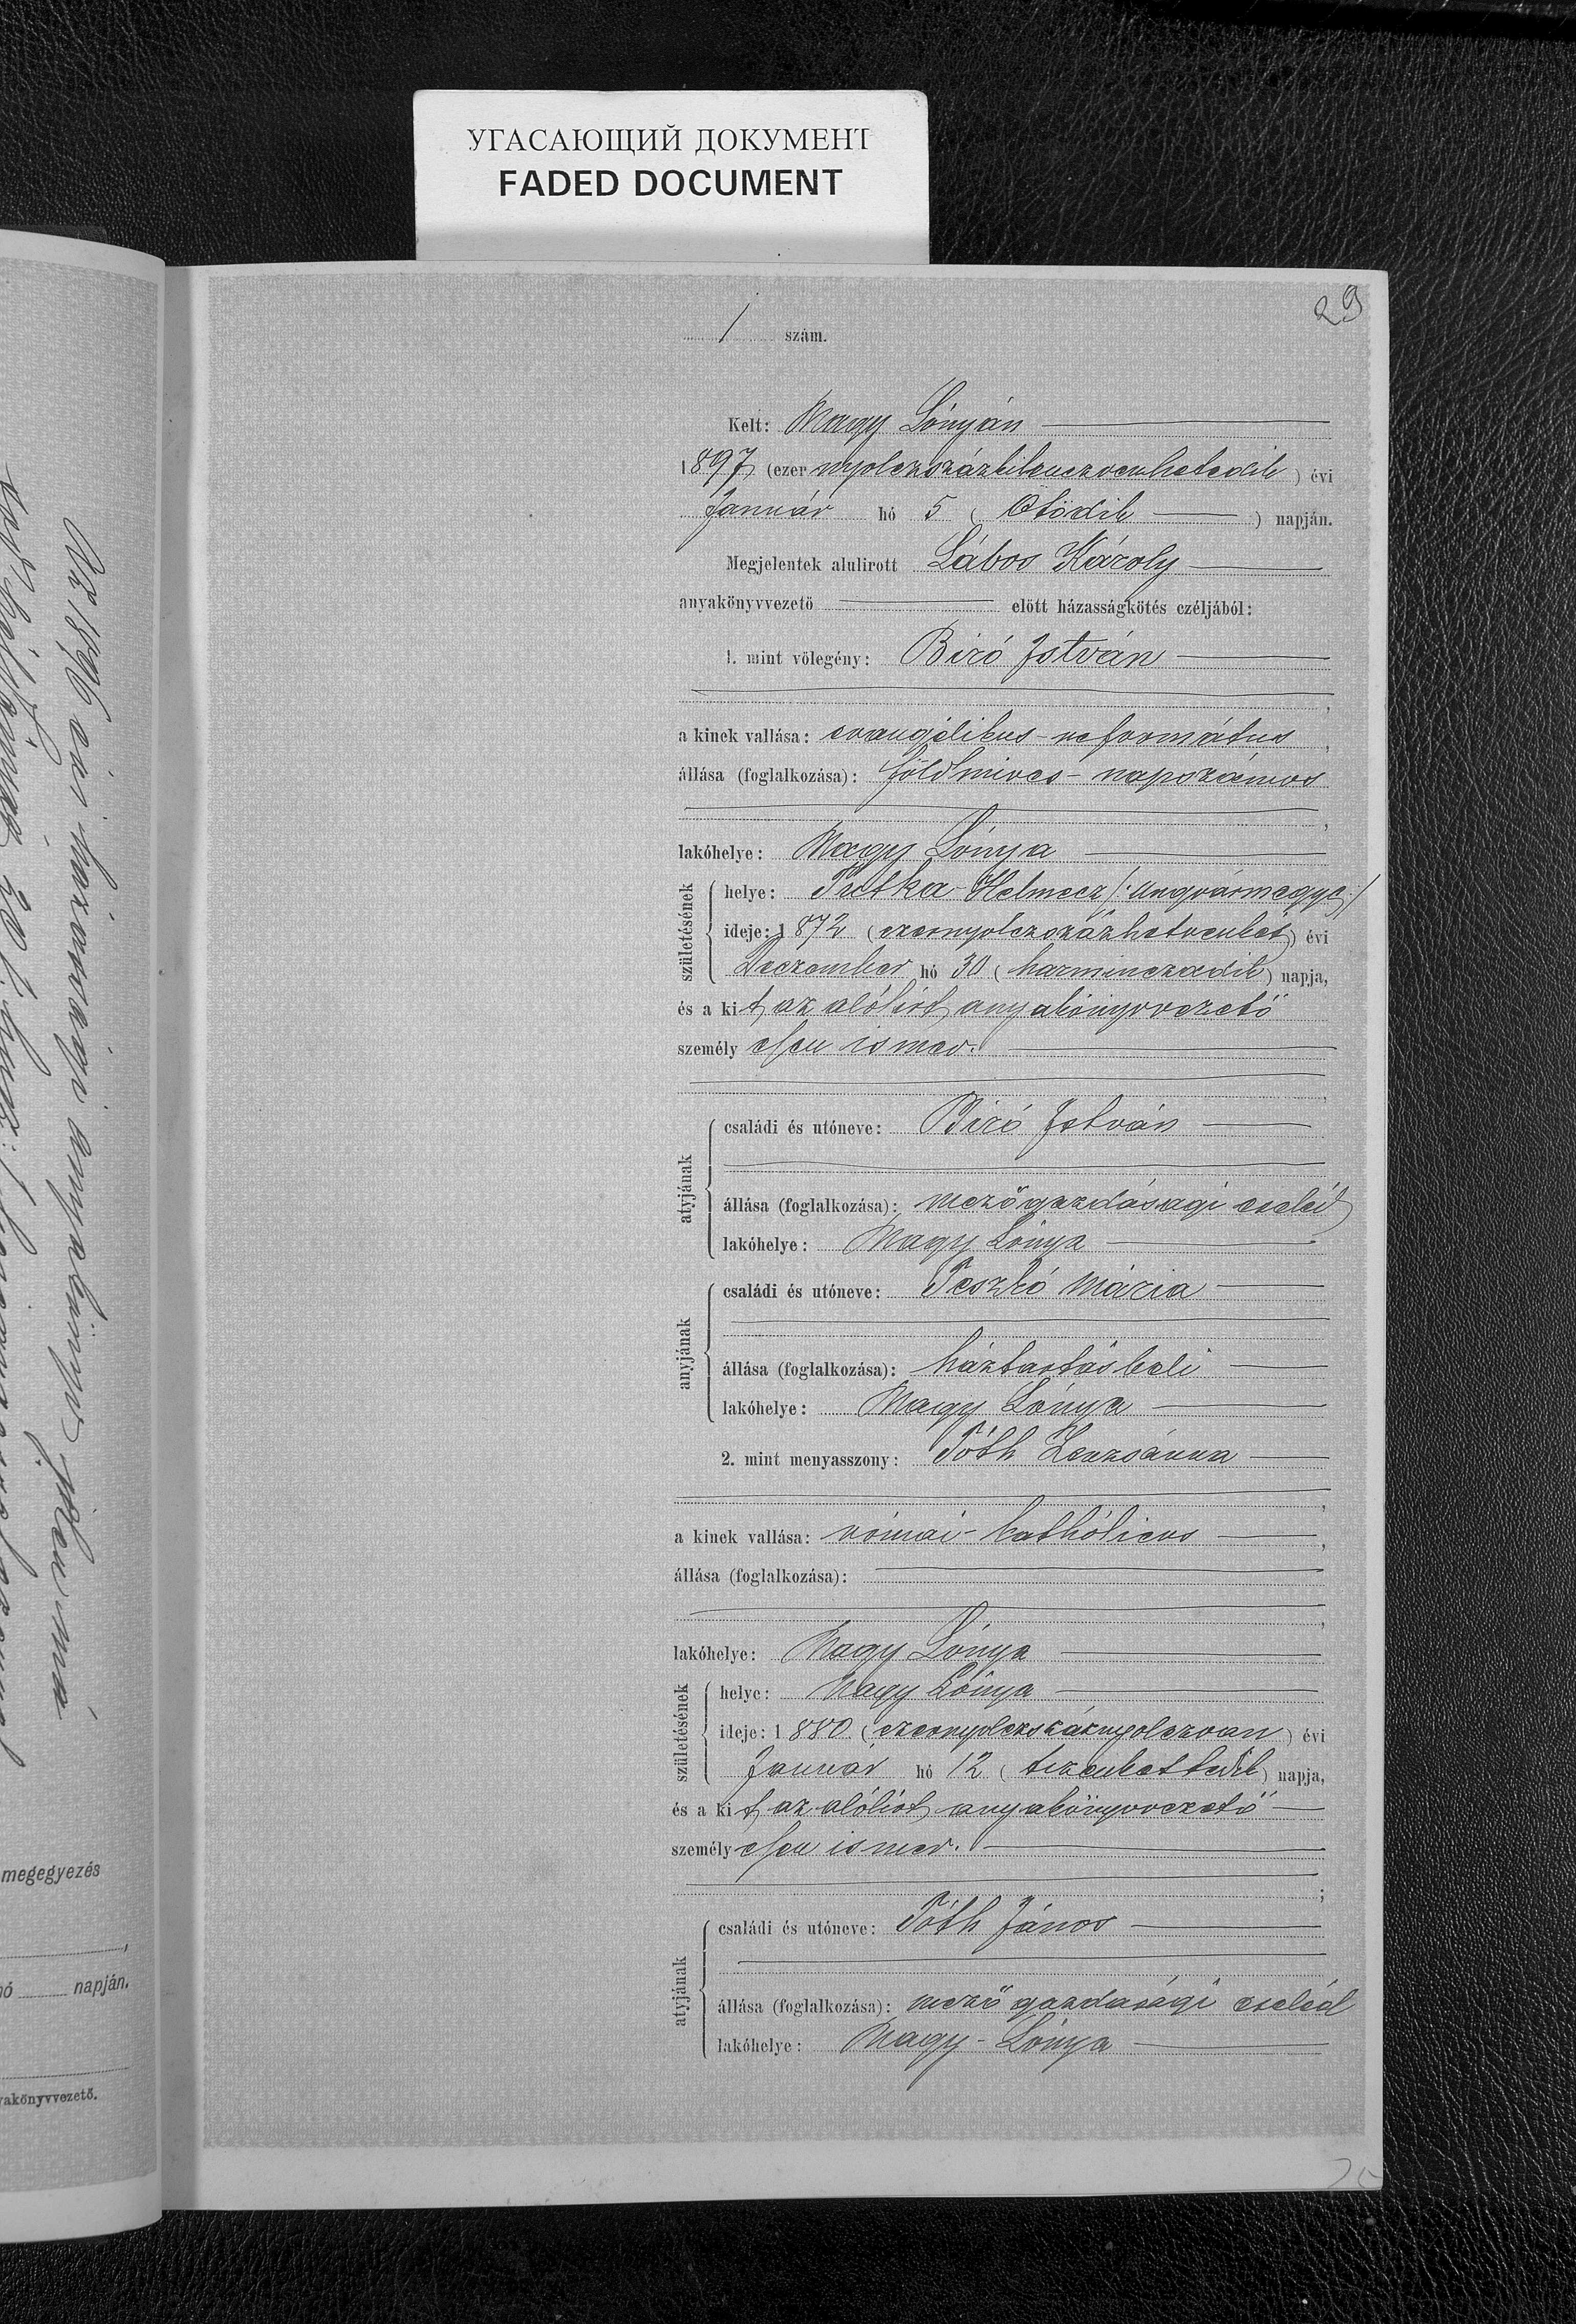 УГАСАЮЩИЙ ДОКУМЕНТ
FADED DOCUMENT
29
1 szám.
Kelt: Nagy Lónyán
1897 (ezer nyolczszázkilenczvenhetedik) évi
Január hó 5 (Ötödik) napján.
Megjelentek alulirott Lábos Károly
anyakönyvvezető előtt házasságkötés czéljából:
1. mint vőlegény: Biró István
a kinek vallása: evangélikus-református,
állása (foglalkozása): földmives-napszámos
lakóhelye: Nagy Lónya
születésének
helye: Putka-Helmecz /: Ungvármegye :/
ideje: 1872 (ezernyolczszázhetvenkét) évi
Deczember hó 30 (harminczadik) napja,
és a kit az alólirt anyakönyvvezető
személyesen ismer.
atyjának
családi és utóneve: Biró István
állása (foglalkozása): mezőgazdasági cseléd
lakóhelye: Nagy Lónya
anyjának
családi és utóneve: Teszkó Mária
állása (foglalkozása): háztartásbeli
lakóhelye: Nagy Lónya
2. mint menyasszony: Tóth Zsuzsánna
a kinek vallása: római-kathólicus,
állása (foglalkozása):
lakóhelye: Nagy Lónya
születésének
helye: Nagy Lónya
ideje: 1880 (ezernyolczszáznyolczvan) évi
Január hó 12 (tizenkettedik) napja,
és a kit az alólirt anyakönyvvezető
személyesen ismer.
atyjának
családi és utóneve: Tóth János
állása (foglalkozása): mező gazdasági cseléd
lakóhelye: Nagy-Lónya
megegyezés
hó napján.